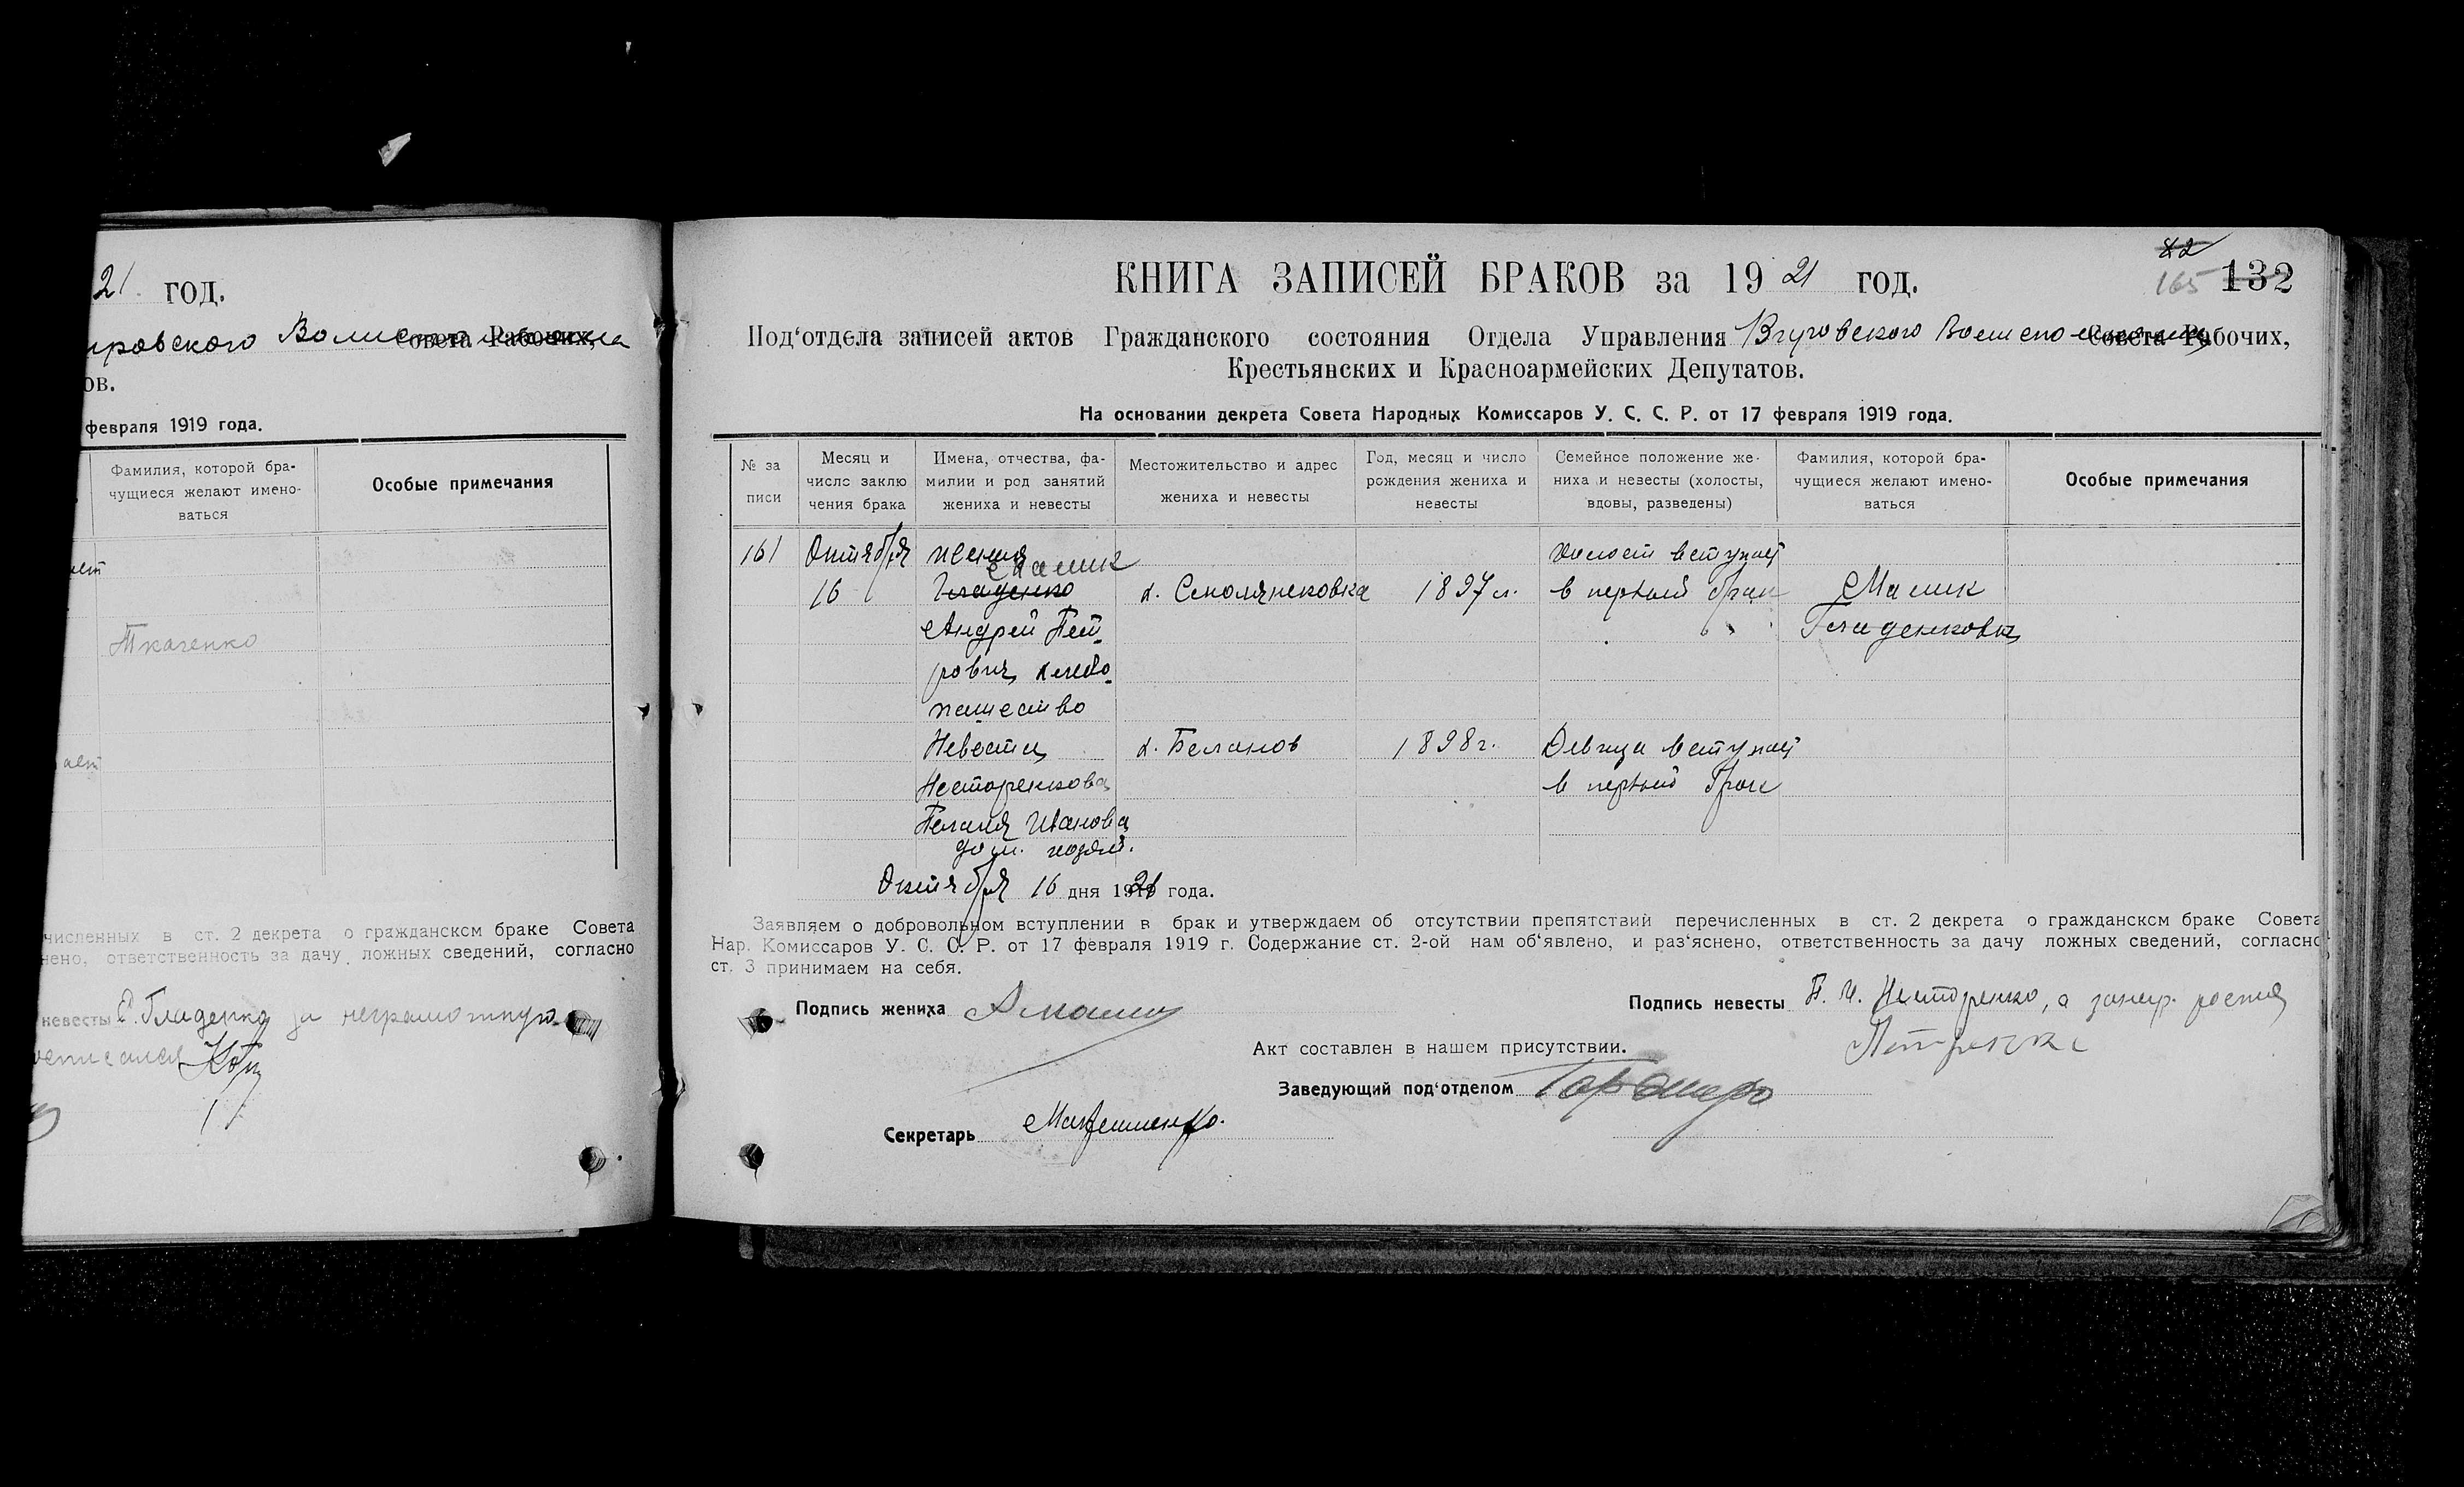 21 год.
Совета Рабочих,
ов.
февраля 1919 года.
Фамилия, которой бра-
чущиеся желают имено-
ваться
Особые примечания
Ткаченко
численных в ст. 2 декрета о гражданском браке Совета
нено, ответственность за дачу ложных сведений, согласно
невесты Е. Гладенко за неграмотную
КНИГА ЗАПИСЕЙ БРАКОВ за 1921 год.
82
165 132
Под‘отдела записей актов Гражданского состояния Отдела Управления Совета Рабочих,
Крестьянских и Красноармейских Депутатов.
На основании декрета Совета Народных Комиссаров У. С. С. Р. от 17 февраля 1919 года.
№ за
писи
Месяц и
число заклю
чения брака
Имена, отчества, фа-
милии и род занятий
жениха и невесты
Местожительство и адрес
жениха и невесты
Год, месяц и число
рождения жениха и
невесты
Семейное положение же-
ниха и невесты (холосты,
вдовы, разведены)
Фамилия, которой бра-
чущиеся желают имено-
ваться
Особые примечания
161 Октября жених холост вступает
Малик
16 Гладенко 1897 г. в первый брак Малик
Андрей Пет- Гладенкова
рович, хлебо-
пашество
Невеста х. Беланов 1898 г. Девица вступает
Несторенкова в первый брак
Пелагия Иванова
дом. хозяй.
Октября 16 дня 1921 года.
Заявляем о добровольном вступлении в брак и утверждаем об отсутствии препятствий перечисленных в ст. 2 декрета о гражданском браке Совета
Нар. Комиссаров У. С. С. Р. от 17 февраля 1919 г. Содержание ст. 2-ой нам об‘явлено, и раз‘яснено, ответственность за дачу ложных сведений, согласно
ст. 3 принимаем на себя.
Подпись жениха А Малик
Подпись невесты П. И. Несторенко, а
Акт составлен в нашем присутствии.
Заведующий под‘отделом
Секретарь